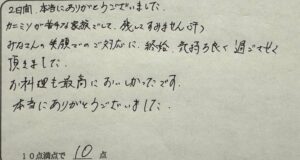 2日間、本当にありがとうございました。
カニミソが苦手な家族でして、残してすみません(汗)
みなさんの笑顔でのご対応に、終始、気持ち良く過ごさせて
頂きました。
お料理も最高においしかったです。
本当にありがとうございました。
10点満点で 10 点